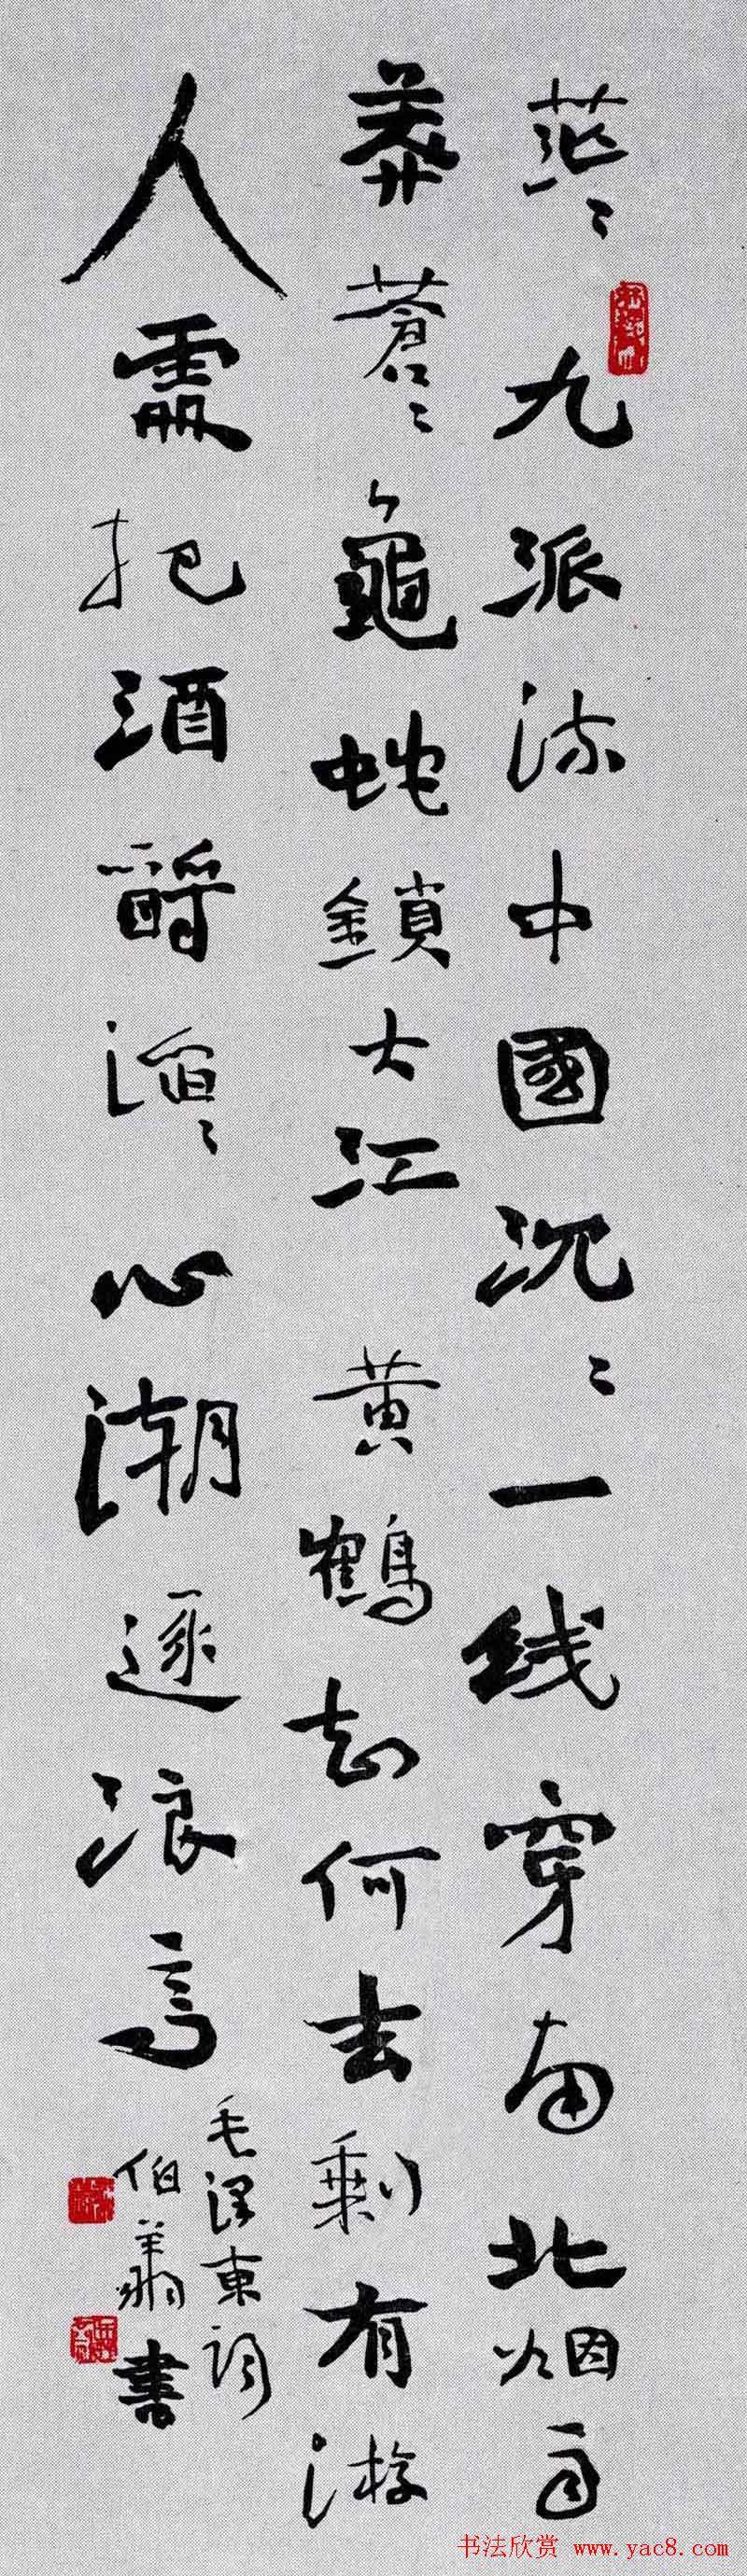 茫〻九派流中國沉〻一线穿南北烟雨
莽蒼〻龜蛇鎖大江黄鶴知何去剩有游
人處把酒酹滔〻心潮逐浪高
毛澤東詞
伯書
书法欣赏 www.yac8.com